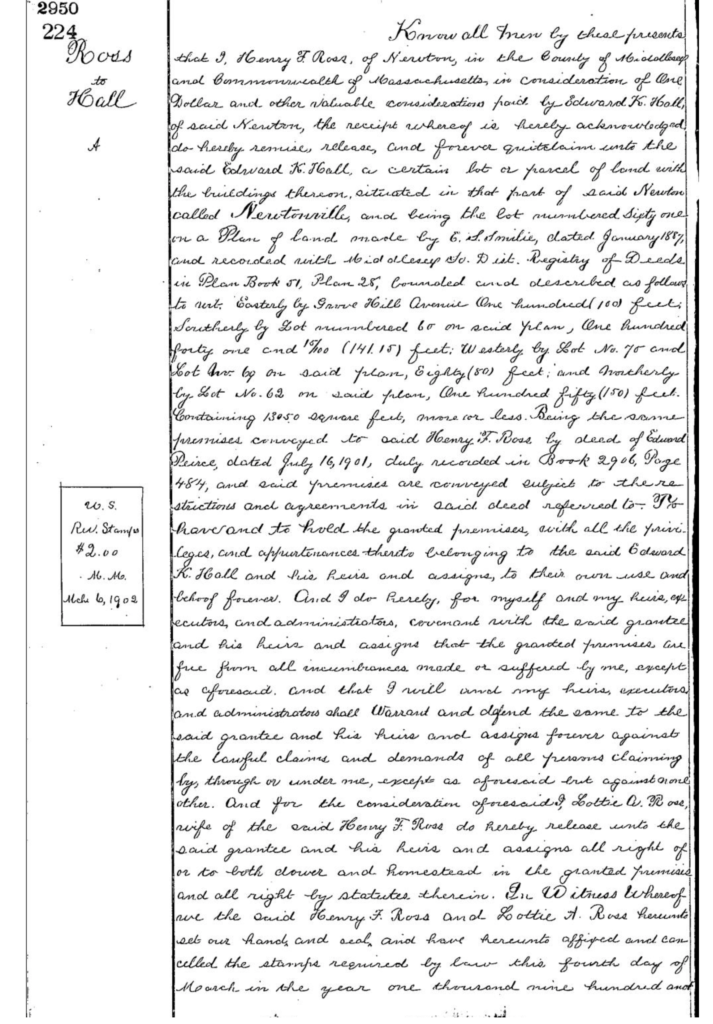 2950
224
Ross
to
Hall
A
Know all Men by these presents
that I, Henry F. Ross, of Newton, in the County of Middlesex
and Commonwealth of Massachusetts, in consideration of One
Dollar and other valuable considerations paid by Edward K. Hall,
of said Newton, the receipt whereof is hereby acknowledged,
do hereby remise, release, and forever quitclaim unto the
said Edward K. Hall, a certain lot or parcel of land with
the buildings thereon, situated in that part of said Newton
called Newtonville, and being the lot numbered Sixty one
on a Plan of land made by E. S. Smilie, dated January 1887,
and recorded with Middlesex So. Dist. Registry of Deeds
in Plan Book 51, Plan 25, bounded and described as follows
to wit: Easterly by Grove Hill Avenue One hundred (100) feet;
Southerly by Lot numbered 60 on said plan, One hundred
forty one and 15/100 (141.15) feet; Westerly by Lot No. 70 and
Lot No. 69 on said plan, Eighty (80) feet; and Northerly
by Lot No. 62 on said plan, One hundred fifty (150) feet.
Containing 13050 square feet, more or less. Being the same
premises conveyed to said Henry F. Ross by deed of Edward
Peirce, dated July 16, 1901, duly recorded in Book 2906, Page
484, and said premises are conveyed subject to the re
strictions and agreements in said deed referred to. To
have and to hold the granted premises, with all the privi
leges, and appurtenances thereto belonging to the said Edward
K. Hall and his heirs and assigns, to their own use and
behoof forever. And I do hereby, for myself and my heirs, ex
ecutors, and administrators, covenant with the said grantee
and his heirs and assigns that the granted premises are
free from all incumbrances made or suffered by me, except
as aforesaid. and that I will and my heirs, executors,
and administrators shall Warrant and defend the same to the
said grantee and his heirs and assigns forever against
the lawful claims and demands of all persons claiming
by, through or under me, except as aforesaid but against none
other. And for the consideration aforesaid I, Lottie A. Ross,
wife of the said Henry F. Ross do hereby release unto the
said grantee and his heirs and assigns all right of
or to both dower and homestead in the granted premises
and all right by statutes therein. In Witness Whereof
we the said Henry F. Ross and Lottie A. Ross hereunto
set our hands and seals, and have hereunto affixed and can
celled the stamps required by law this fourth day of
March in the year one thousand nine hundred and
U. S.
Rev. Stamps
$2.00
M. M.
Mch 6, 1902